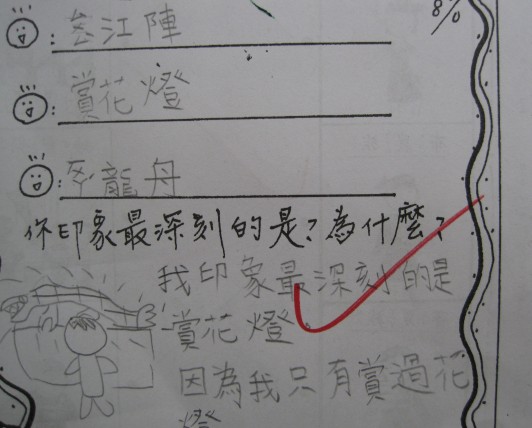 宋江陣
賞花燈
龍舟
你印象最深刻的是?為什麼?
我印象最深刻的是
賞花燈。
因為我只有賞過花
燈
8%